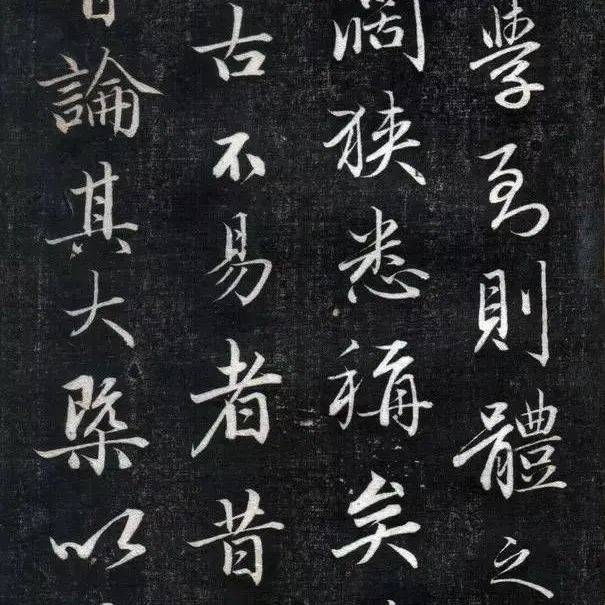 學至則體之
闊狹悉稱矣
古不易者昔
論其大槩以